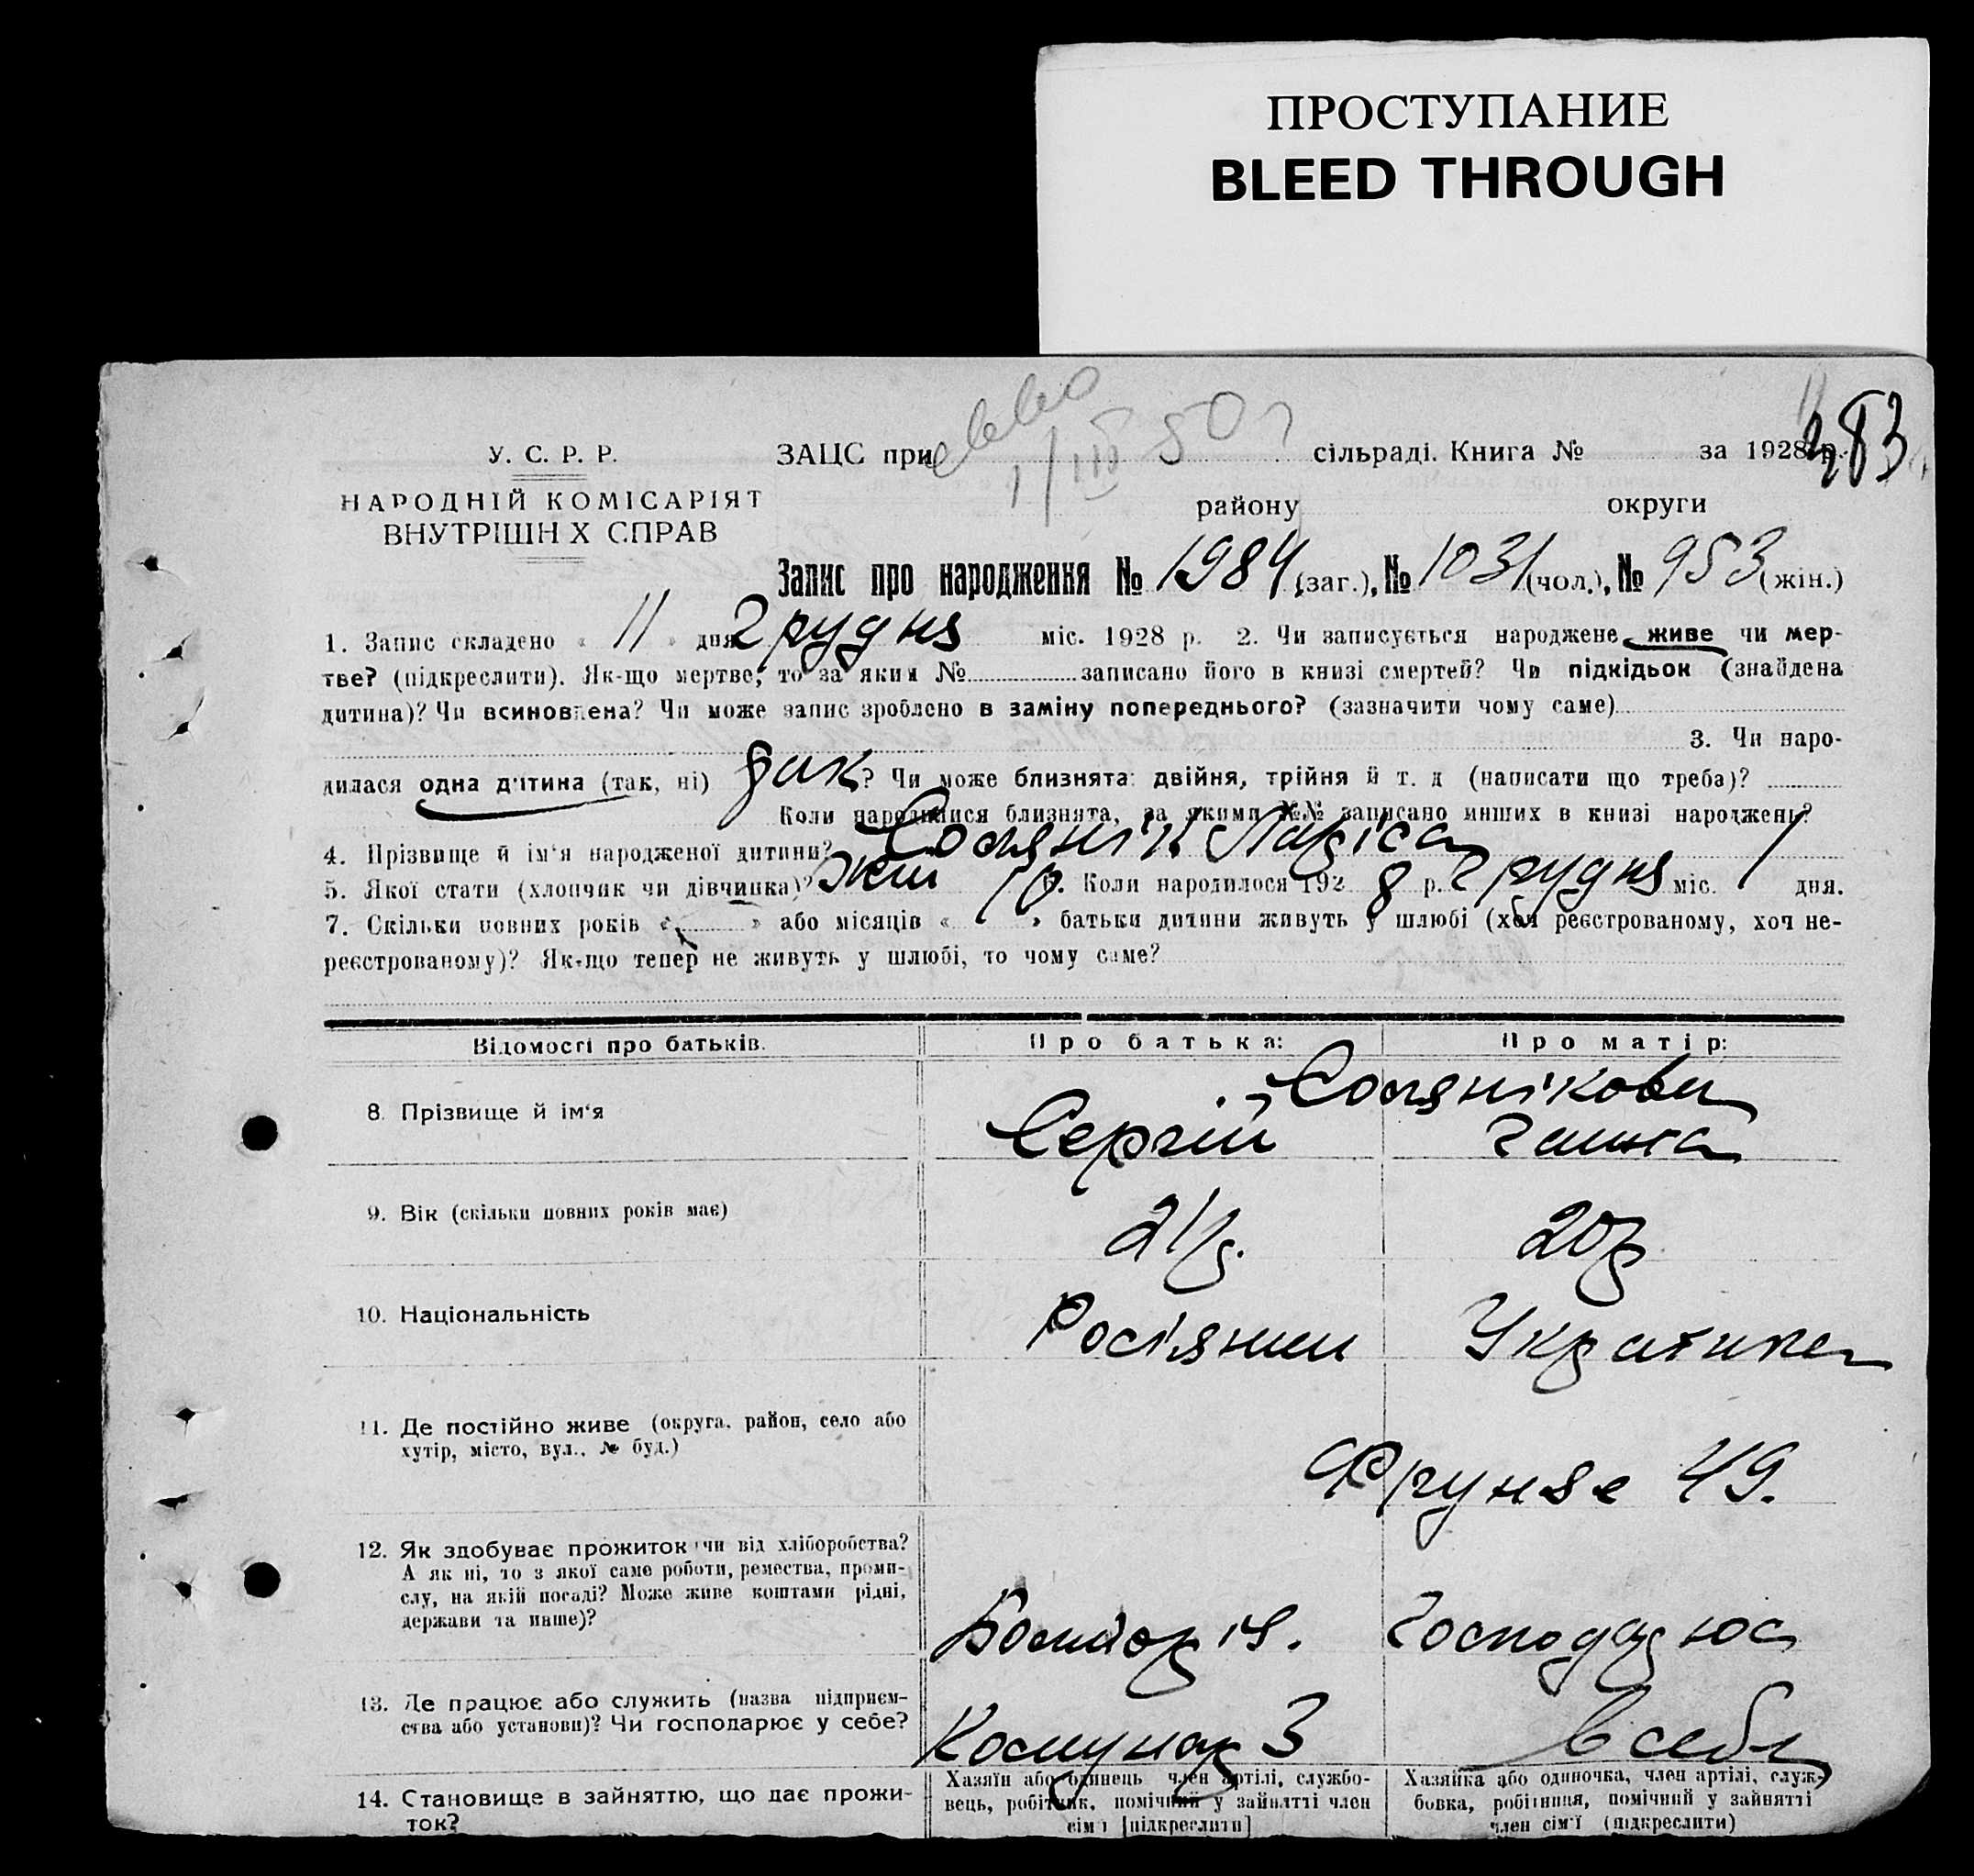 ПРОСТУПАНИЕ
BLEED THROUGH
283
У. С. Р. Р.
ЗАЦС при сільраді. Книга № за 1928 р.
НАРОДНІЙ КОМІСАРІЯТ
району округи
ВНУТРІШН Х СПРАВ
Запис про народження № 1984 (заг.), № 1031 (чол.), № 953 (жін.)
1. Запис складено « 11 » дня Грудня міс. 1928 р. 2. Чи записується народжене живе чи мер-
тве? (підкреслити). Як-що мертве, то за яким № записано його в книзі смертей? Чи підкідьок (знайдена
дитина)? Чи всиновлена? Чи може запис зроблено в заміну попереднього? (зазначити чому саме)
3. Чи наро-
дилася одна дитина (так, ні) так? Чи може близнята: двійня, трійня й т. д (написати що треба)?
Коли народилися близнята, за якими №№ записано инших в книзі народжень?
4. Прізвище й ім'я народженої дитини? Соляник Ларіса
5. Якої стати (хлопчик чи дівчинка)? жін 6. Коли народилося 1928 р. Грудня міс. 1 дня.
7. Скільки повних років « » або місяців « » батьки дитини живуть у шлюбі (хоч реєстрованому, хоч не-
реєстрованому)? Як-що тепер не живуть у шлюбі, то чому саме?
Відомості про батьків. Про батька: Про матір:
Солянікови
8. Прізвище й ім'я Сергій Ганна
9. Вік (скільки повних років має) 21 р. 20 р
10. Національність Росіянин Українка
11. Де постійно живе (округа, район, село або
хутір, місто, вул., № буд.)
Фрунзе 49.
12. Як здобуває прожиток чи від хліборобства?
А як ні, то з якої саме роботи, ремества, проми-
слу, на якій посаді? Може живе коштами рідні,
держави та инше)?
Господарює
13. Де працює або служить (назва підприєм-
ства або установи)? Чи господарює у себе?
Комунар 3 в себе
14. Становище в зайняттю, що дає прожи-
ток?
Хазяїн або одинець член артілі, службо-
вець, робітник, помічний у зайнятті член
сім'ї [підкреслити]
Хазяйка або одиночка, член артілі, служ-
бовка, робітниця, помічний у зайнятті
член сім'ї (підкреслити)